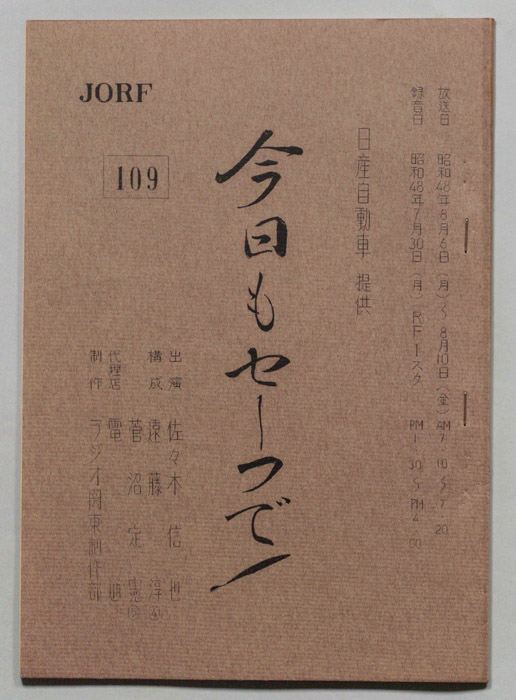 放送日 昭和48年8月6日(月)〜8月10日(金) AM7:10〜7:20
録音日 昭和48年7月30日(月) RF1スタ PM1:30〜PM4:00
日産自動車 提供
今日もセーフで!
JORF
109
出演 佐々木信也
構成 遠藤淳
菅沼定憲
代理店 電通
制作 ラジオ関東制作部